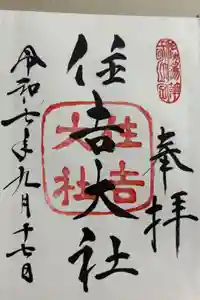 奉拝
住吉大社
住吉
大社
令和六年九月十七日